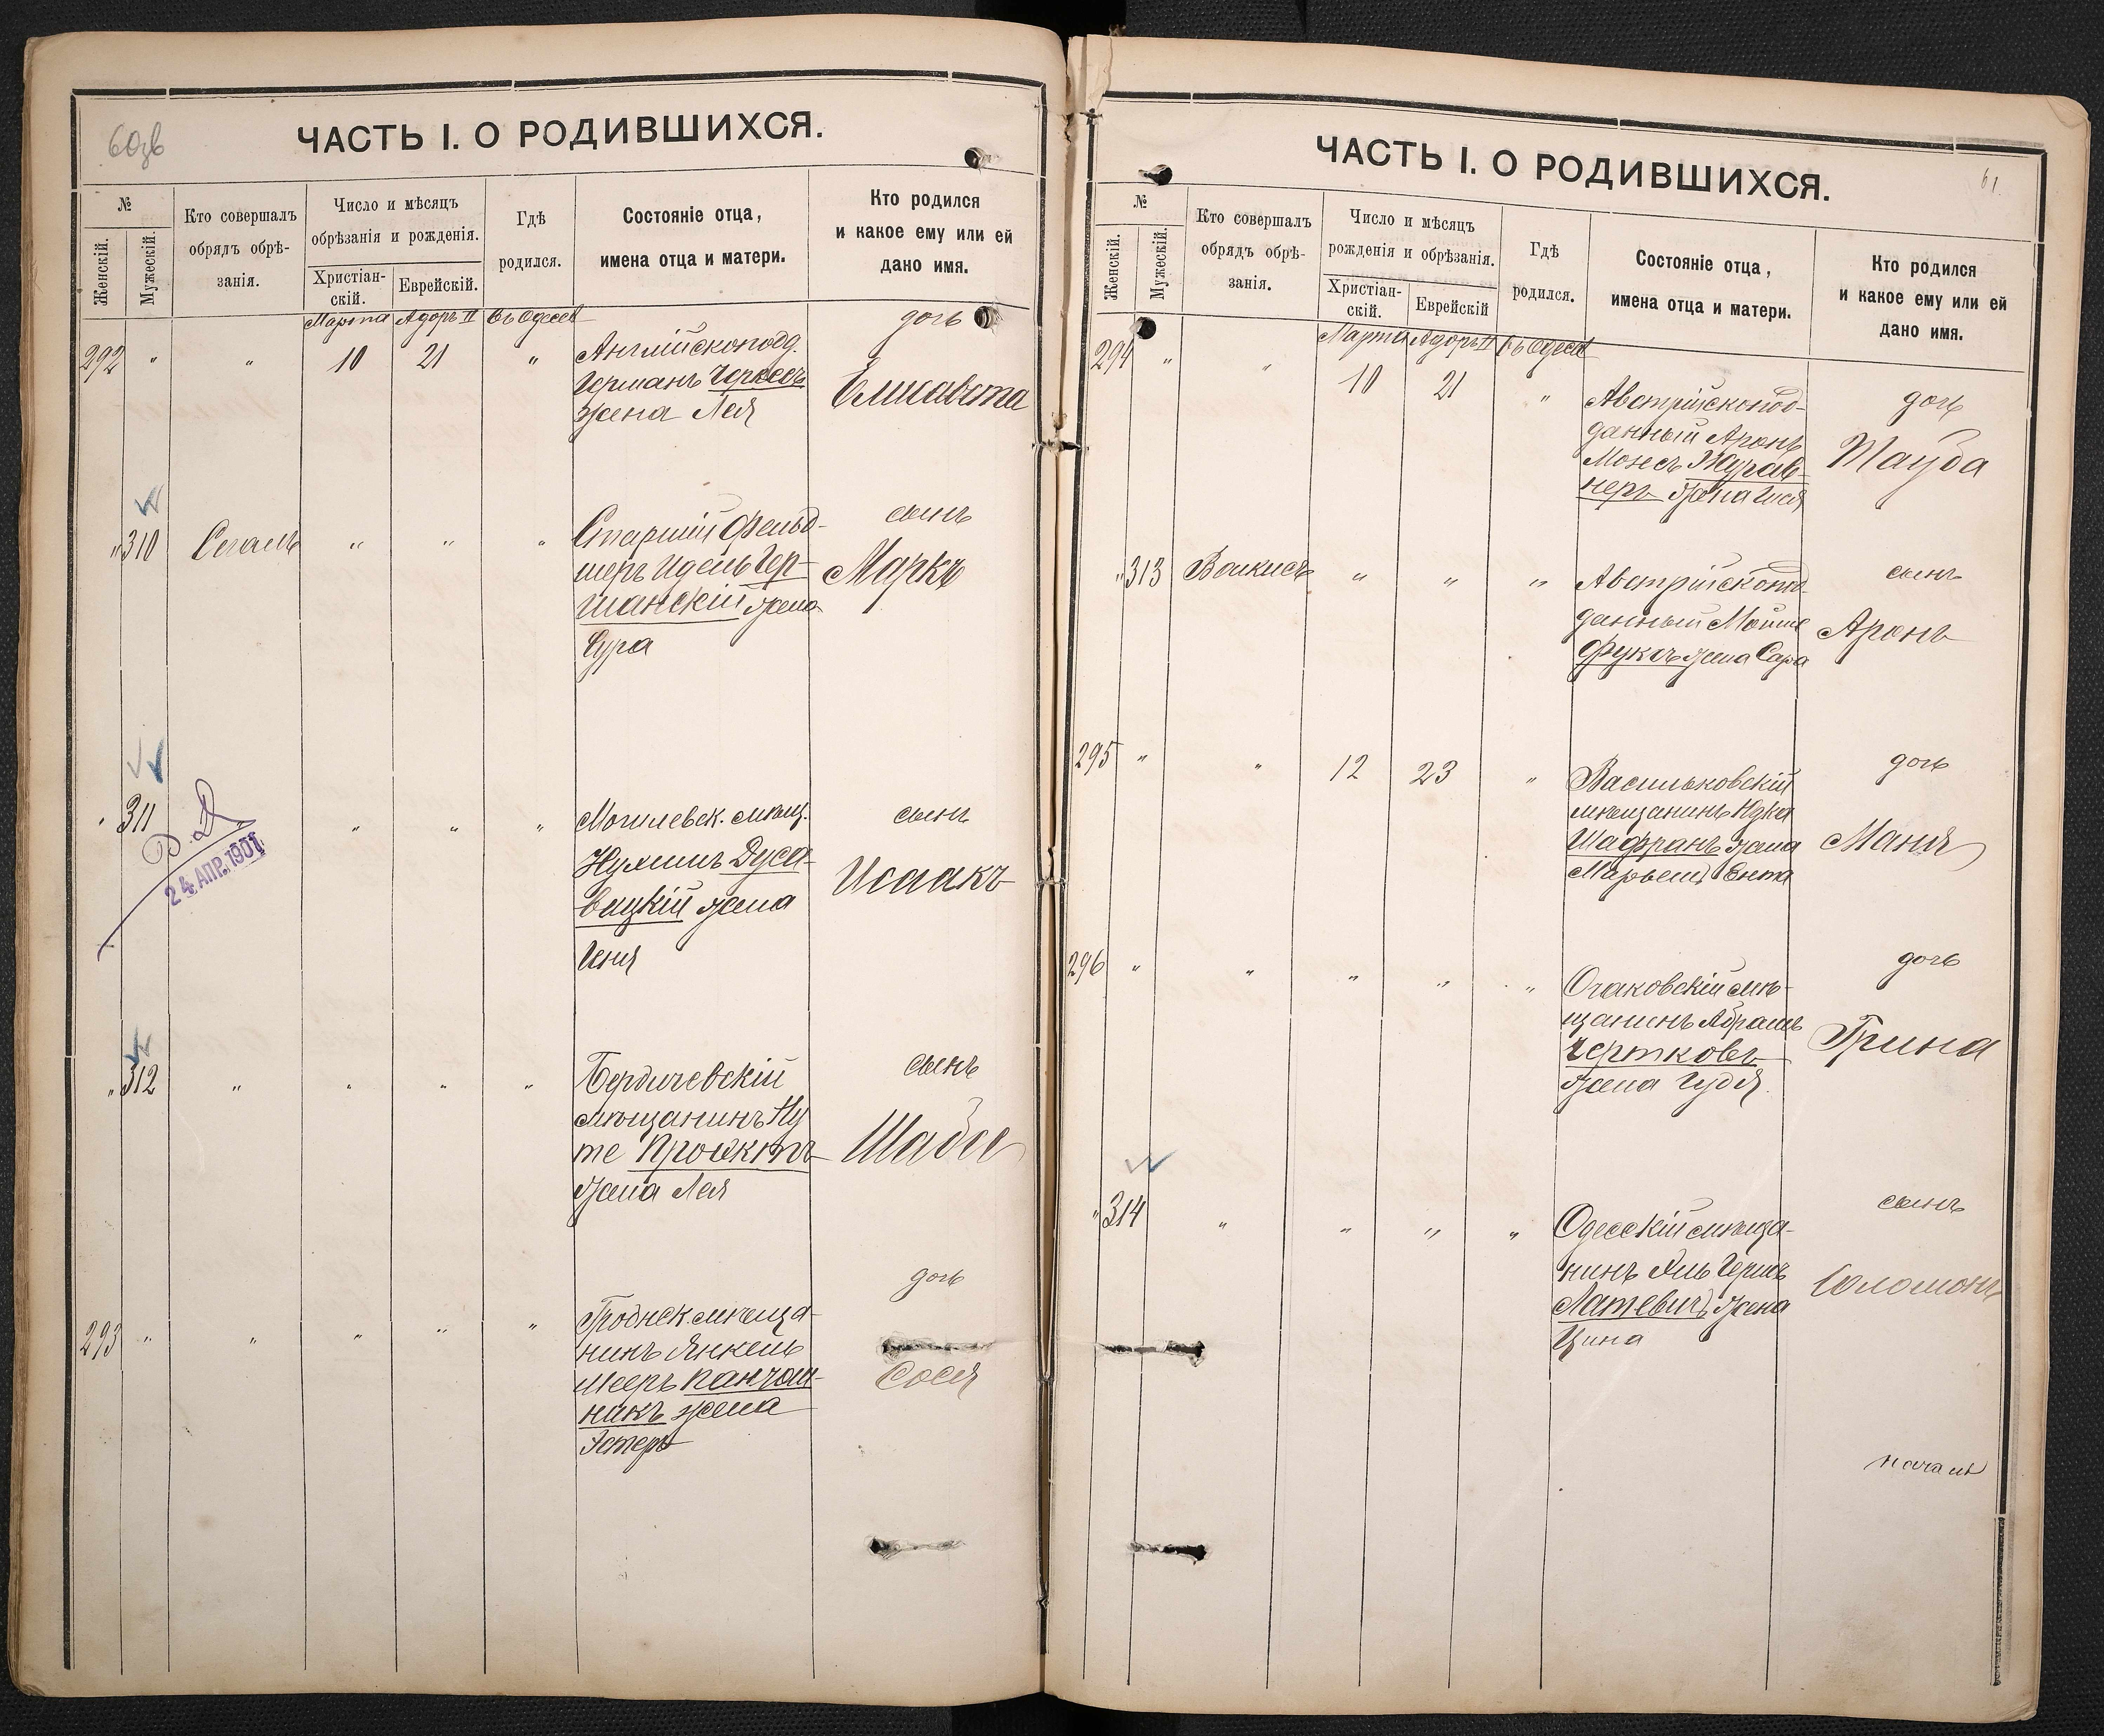 60об
ЧАСТЬ I. О РОДИВШИХСЯ.
№
Женскій.
Мужескій.
Кто совершалъ
обрядъ обрѣ-
занія.
Число и мѣсяцъ
обрѣзанія и рожденія.
Христіан-
скій.
Еврейскій.
Гдѣ
родился.
Состояніе отца,
имена отца и матери.
Кто родился
и какое ему или ей
дано имя.
Марта Адоръ II Въ Одессѣ
292 " " 10 21 "
Англійскопод.
Германъ Черкесъ
жена Лея
дочь
Елисавета
" 310 Сегаль " " "
Старшій фельд-
шеръ Идель Гер-
шанскій жена
Сура
сынъ
Маркъ
" 311 " " " "
В. Д.
24 АПР. 1901
Могилевск. мѣщ.
Нухимъ Дуса-
вицкій жена
Хеня
сынъ
Исаакъ
" 312 " " " "
Бердичевскій
мѣщанинъ Ну
те Проектъ
жена Лея
сынъ
Шабсе
293 " " " " "
Гроднск. мѣща-
нинъ Янкель
Мееръ Панчош-
никъ жена
Эстеръ
дочь
Сося
61.
ЧАСТЬ I. О РОДИВШИХСЯ.
№
Женскій.
Мужескій.
Кто совершалъ
обрядъ обрѣ-
занія.
Число и мѣсяцъ
рожденія и обрѣзанія.
Христіан-
скій.
Еврейскій
Гдѣ
родился.
Состояніе отца,
имена отца и матери.
Кто родился
и какое ему или ей
дано имя.
Марта Адоръ II Въ Одессѣ
294 " " 10 21 "
Австрійскопод-
данный Аронъ
Мозесъ Журав-
неръ жена
дочь
Тауба
" 313 " " "
Австрійскопод-
данный Мойше
Фуксъ жена Сара
сынъ
Аронъ
295 " " 12 23 "
Васильковскій
мѣщанинъ Юдка
Шафранъ жена
Марьемъ Ента
дочь
Маня
296 " " " " "
Очаковскій мѣ-
щанинъ Абрамъ
Чертковъ
жена Гудя.
дочь
Грина
" 314 " " " "
Одесскій мѣща-
нинъ Эль Гершъ
Латевичъ жена
Цина
сынъ
Соломонъ